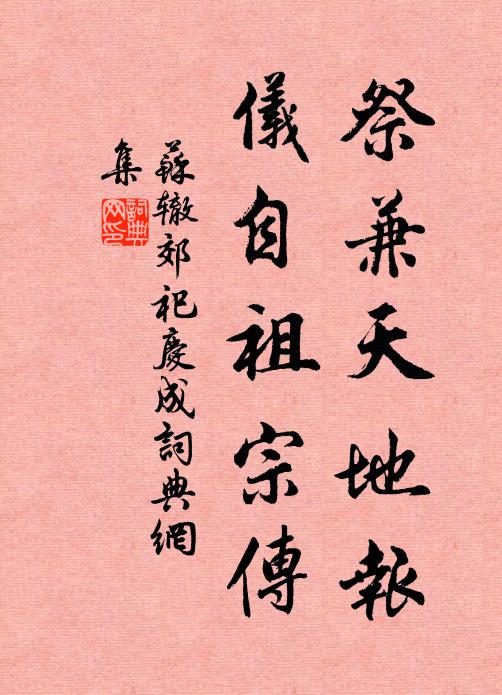 祭兼天地報
儀自祖宗傳
蘇轍郊祀慶成詞典網
集
詞典網印